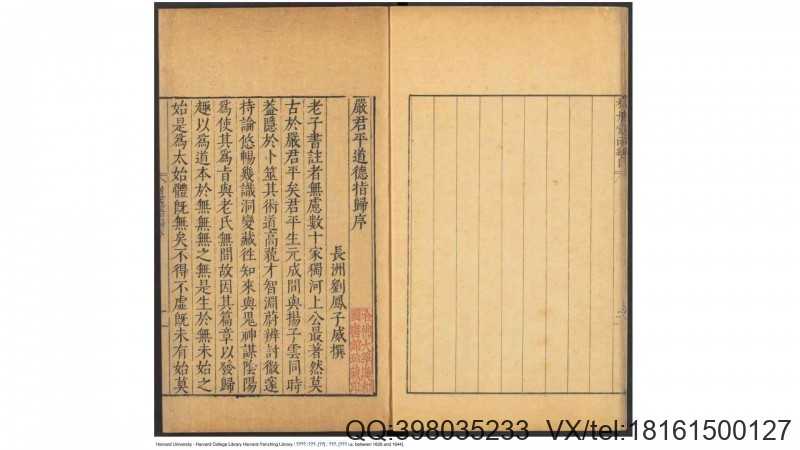 嚴君平道德指歸序
長洲劉鳳子威撰
老子書註者無慮數十家獨河上公最著然莫
古於嚴君平矣君平生元成間與揚子雲同時
蓋隱於卜筮其術道高藐才智淵蔚辨討微邃
持論悠暢幾識洞變藏往知來與鬼神謀陰陽
為使其為肯與老氏無間故因其篇章以發歸
趣以為道本於無無之無是生於無未始之
始是為太始體旣無矣不得不虛旣未有始莫
Harvard University - Harvard College Library Harvard-Yenching Library / ????: ???, [??] : ???, [??? i.e. between 1628 and 1644]
QQ:398035233 VX/tel:18161500127